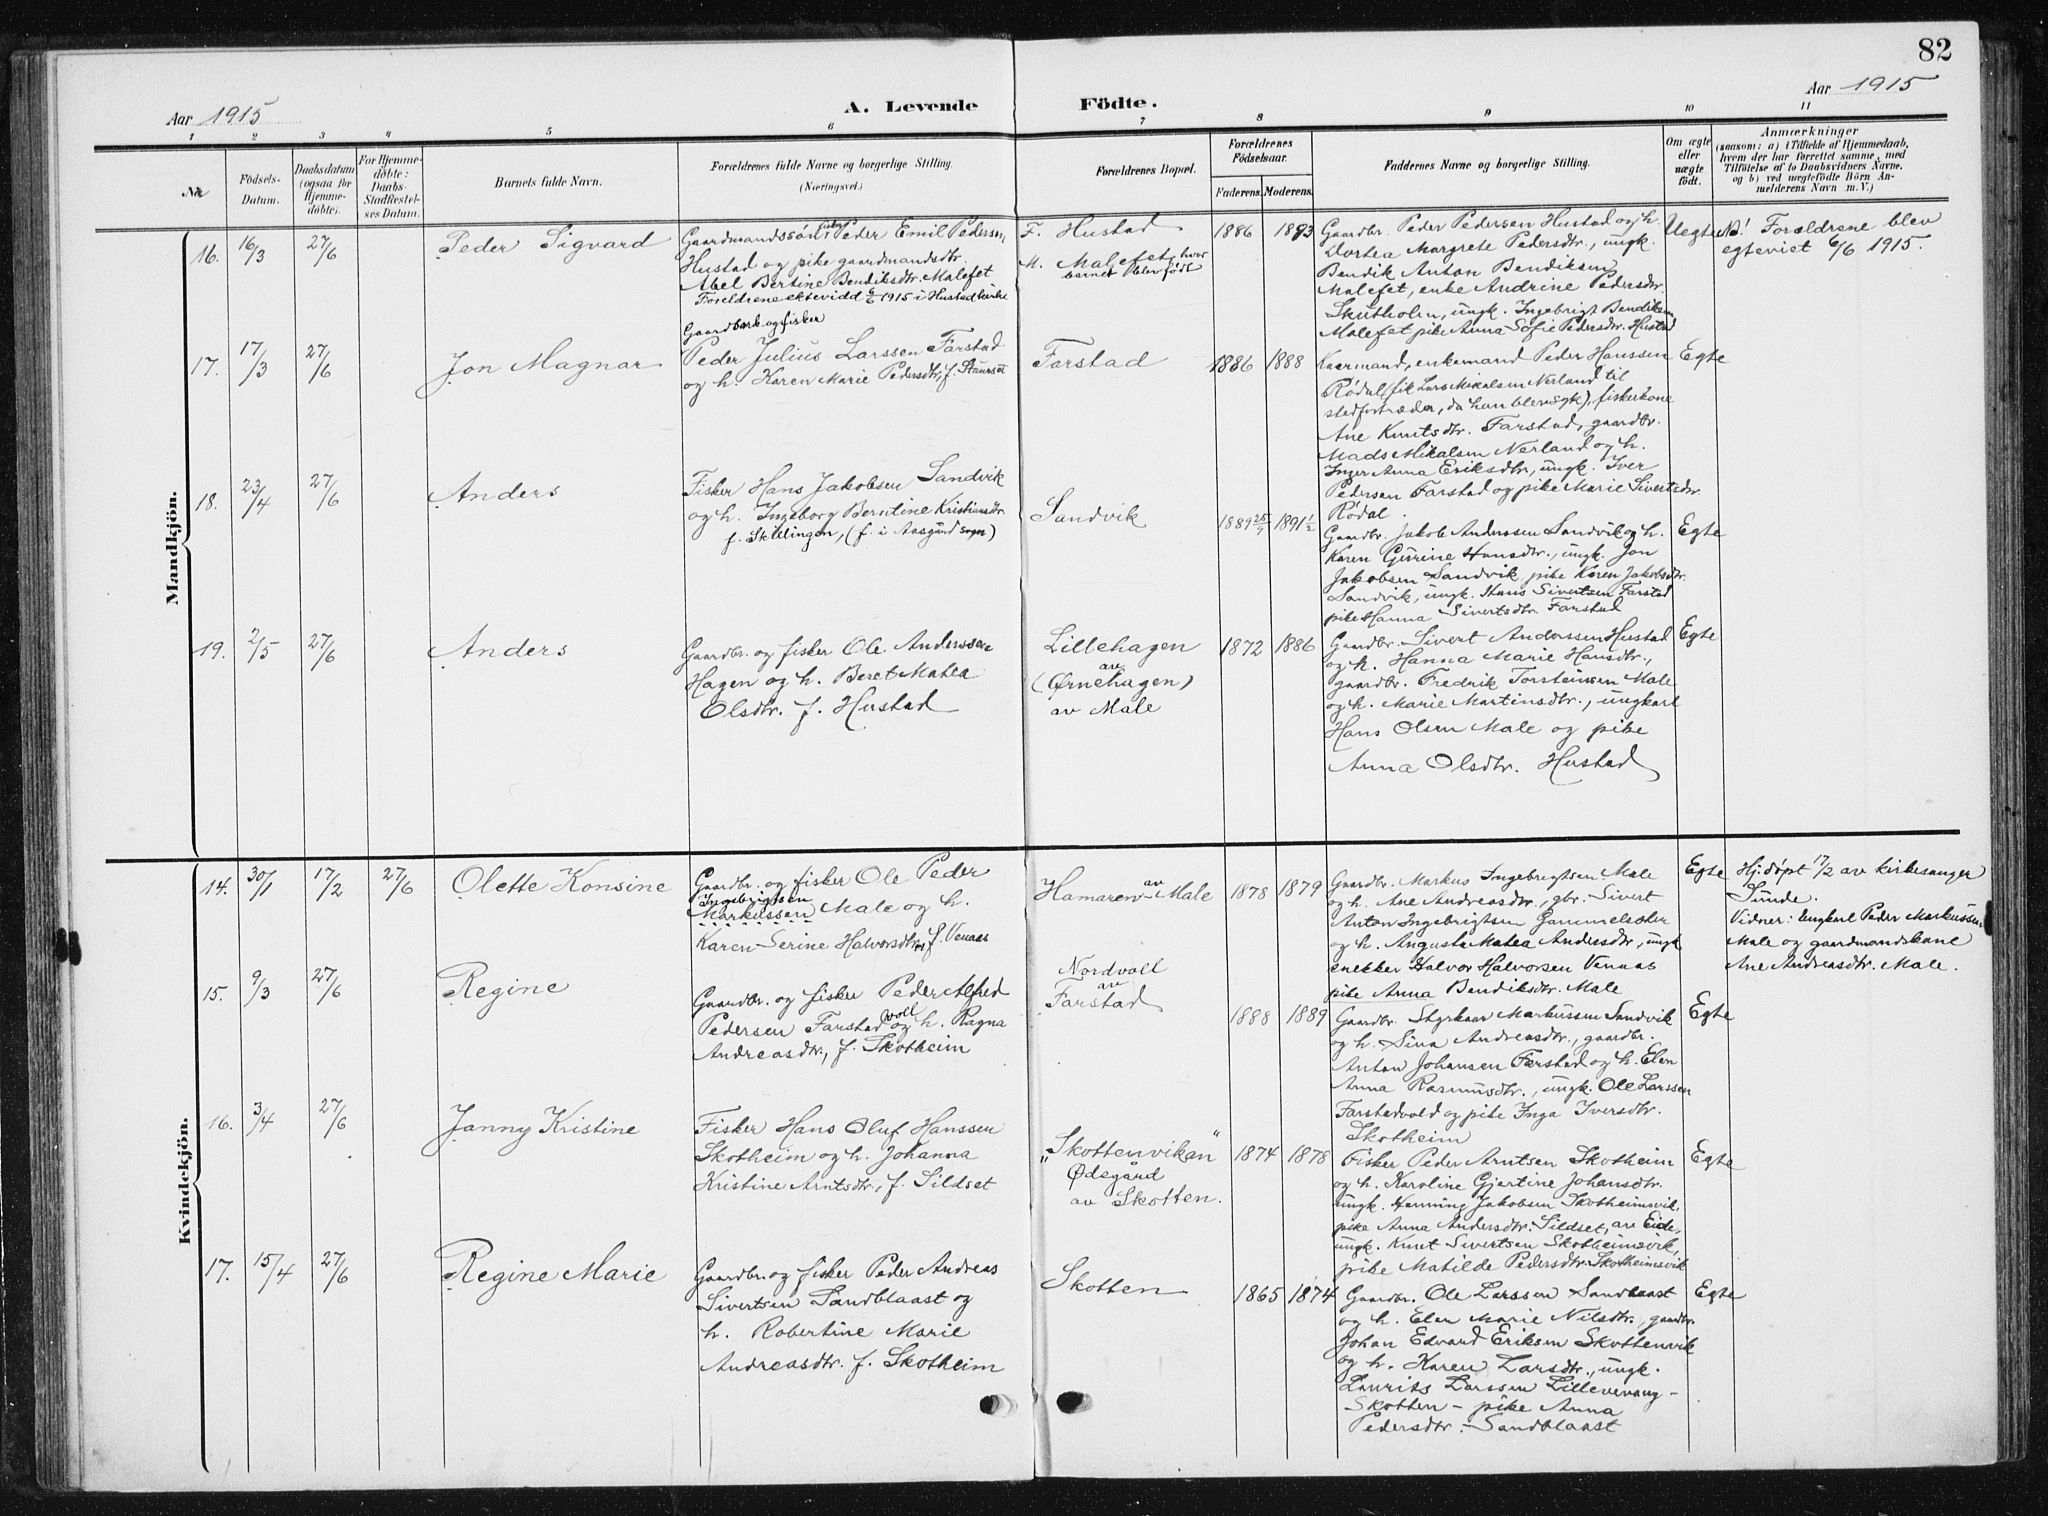 82
Aar 1915
A. Levende Födte.
Aar 1915
1 2 3 4 5 6 7 8 9 10 11
No.
Födsels-
Datum.
Daabsdatum
(ogsaa for
Hjemme-
döbte).
For Hjemme-
döbte:
Daabs-
Stadfestel-
ses Datum.
Barnets fulde Navn.
Forældrenes fulde Navne og borgerlige Stilling.
(Næringsvei.)
Forældrenes Bopæl.
Forældrenes
Födselsaar.
Faderens. Moderens.
Faddernes Navne og borgerlige Stilling.
Om ægte
eller
uægte
födt.
Anmærkninger
(saasom: a) i Tilfælde af Hjemmedaab,
hvem der har forrettet samme, med
Tilföielse af to Daabsvidners Navne.
og b) ved uægtefödte Börn An-
melderens Navn m. V.)
Mandkjön.
16. 16/3 27/6
Peder Sigvard
Gaardmandssön, fisker Peder Emil Pedersen
Hustad og pike gaardmandsdtr.
Abel Bertine Bendiksdtr. Malefet
Foreldrene ektevidd 6/6 1915 i Hustad kirke
F. Hustad
M. Malefet, hvor
barnet blev født
1886 1893
Gaardbr. Peder Pedersen Hustad og h.
Dortea Margrete Pedersdtr., ungk.
Bendik Anton Bendiksen
Malefet, enke Andrine Pedersdtr.
Skutholm, ungk. Ingebrigt Bendiksen
Malefet pike Anna Sofie Pedersdtr. Hustad
Uegte
N! Foreldrene blev
egteviet 6/6 1915.
17. 17/3 27/6
Jon Magnar
Gaardbark. og fisker
Peder Julius Larssen Farstad
og h. Karen Marie Pedersdtr, f. Staurset
Farstad
1886 1888
Kaarmand, enkemand Peder Hanssen
Rødal (fik Lars Mikalsen Nerland til
stedfortræder, da han blev syk), fiskerkone
Ane Knutsdtr. Farstad, gaardbr.
Mads Mikalsen Nerland og h.
Inger Anna Eriksdtr., ungk. Iver
Pedersen Farstad og pike Marie Sivertsdtr.
Rödal.
Egte
18. 23/4 27/6
Anders
Fisker Hans Jakobsen Sandvik
og h. Ingeborg Berntine Kristiansdtr.
f. Skillingen, (f. i Aasgård sogn)
Sandvik
1889 25/9 1891 1/2
Gaardbr. Jakob Anderssen Sandvik og h.
Karen Gurine Hansdtr., ungk. Jon
Jakobsen Sandvik, pike Karen Jakobsdtr.
Sandvik, ungk. Hans Sivertsen Farstad
pike Hanna Sivertsdtr. Farstad
Egte
19. 2/5 27/6
Anders
Gaardbr. og fisker Ole Anderssen
Hagen og h. Beret Matea
Olsdtr. f. Hustad
Lillehagen
av
(Ørnehagen)
av Male
1872 1886
Gaardbr. Sivert Anderssen Hustad
og h. Hanna Marie Hansdtr.,
gaardbr. Fredrik Torsteinsen Male
og h. Marie Martinsdtr., ungkarl
Hans Olsen Male og pike
Anna Olsdtr. Hustad
Egte
Kvindekjön.
14. 30/1 17/2 27/6
Olette Konsine
Gaardbr. og fisker Ole Peder
Ingebrigtsen
Markussen Male og h.
Karen Serine Halvorsdtr., f. Venaas
Hamaren av Male
1878 1879
Gaardbr. Markus Ingebrigtsen Male
og h. Ane Andreasdtr., gbr. Sivert
Anton Ingebrigtsen Gammelseter
og h. Augusta Matea Andersdtr., ungk
snekker Halvor Halvorsen Venaas
pike Anna Bendiksdtr. Male
Egte
Hj.døpt 17/2 av kirkesanger
Sunde.
Vidner: Ungkarl Peder Markussen
Male og gaardmandskone
Ane Andreasdtr. Male.
15. 9/3 27/6
Regine
Gaardbr. og fisker Peder Alfred
Pedersen Farstadvoll og h. Ragna
Andreasdtr., f. Skotheim
Nordvoll
av
Farstad
1888 1889
Gaardbr. Styrkaar Markussen Sandvik
og h. Sina Andreasdtr., gaardbr.
Anton Johansen Farstad og h. Elen
Anna Rasmusdtr., ungk. Ole Larssen
Farstadvold og pike Inga Iversdtr.
Skotheim
Egte
16. 3/4 27/6
Janny Kristine
Fisker Hans Oluf Hanssen
Skotheim og h. Johanna
Kristine Arntsdtr., f. Sildset
"Skottenvikan"
Ødegård
av Skotten.
1874 1878
Fisker Peder Arntsen Skotheim
og h. Karoline Gjertine Johansdtr.
ungk. Henning Jakobsen Skotheimsvik,
pike Anna Andersdtr. Sildset, av Eide,
ungk. Knut Sivertsen Skotheimsvik,
pike Matilde Pedersdtr. Skotheimsvik
Egte
17. 15/4 27/6
Regine Marie
Gaardbr. og fisker Peder Andreas
Sivertsen Sandblaast og
h. Robertine Marie
Andreasdtr. f. Skotheim
Skotten
1865 1874
Gaardbr. Ole Larssen Sandblaast
og h. Elen Marie Nilsdtr., gaardbr.
Johan Edvard Eriksen Skottenvik
og h. Karen Larsdtr., ungk.
Laurits Larssen Lillevevang-
Skotten - pike Anna
Pedersdtr. - Sandblaast
Egte